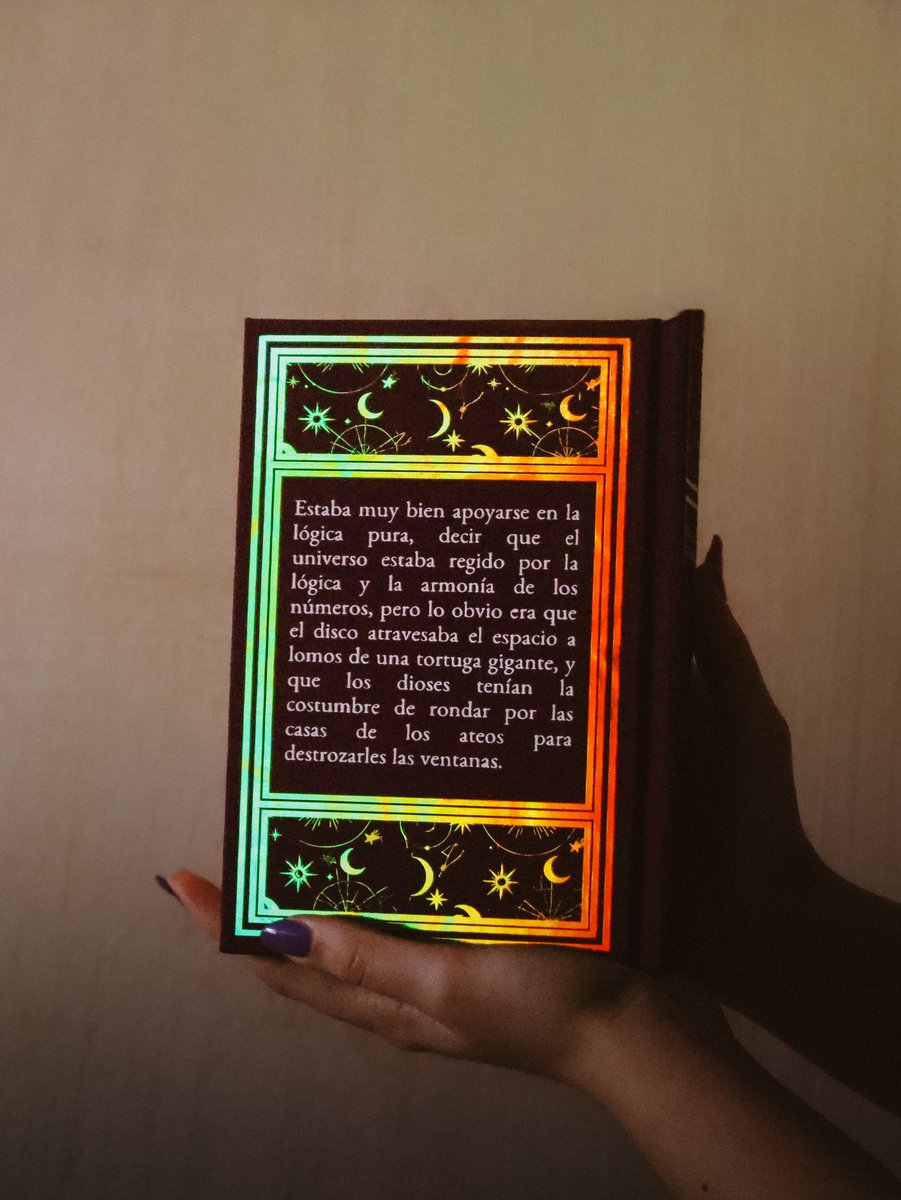 Estaba muy bien apoyarse en la
lógica pura, decir que el
universo estaba regido por la
lógica y la armonía de los
números, pero lo obvio era que
el disco atravesaba el espacio a
lomos de una tortuga gigante, y
que los dioses tenían la
costumbre de rondar por las
casas de los ateos para
destrozarles las ventanas.